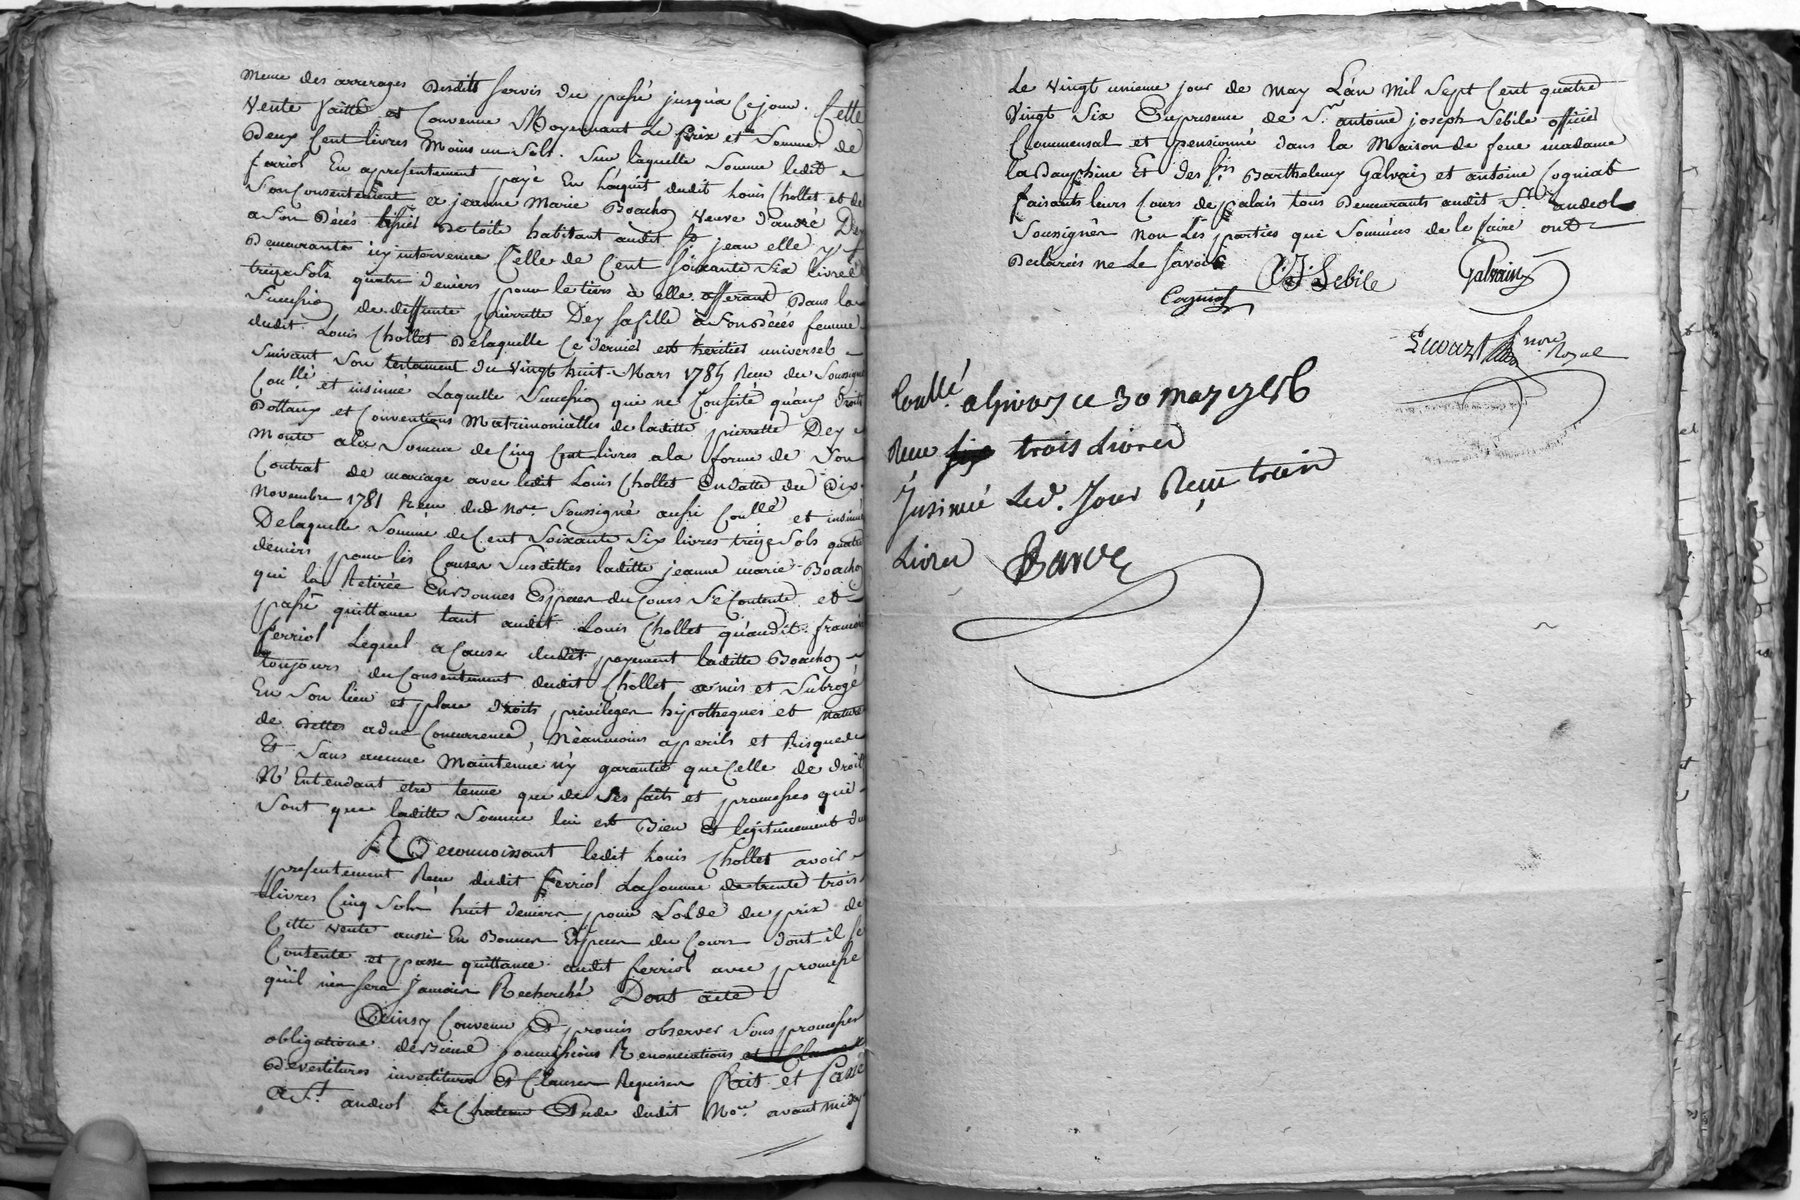 meme des arrerages desdits servis du passé jusqua ce jour. Cette
vente faitte et Convenue Moyennant le prix et Somme de
deux Cent livres Moins un Sols. Sur laquelle Somme ledit
ferriol En a presentement payé En L'acquit dudit Louis Chollet et de
Son Consentement a jeanne Marie Boachoz veuve d'andré Dey
a son décés de toile habitant audit St jean elle y
demeurante icy intervenue Celle de Cent soixante six livres
treize sols quatre deniers pour le tiers à elle afferant dans la
Succession de deffunte pierrette Dey sa fille à son décés femme
dudit Louis Chollet de laquelle Ce dernier est heritier universel
suivant son testament du vingt huit Mars 1785 Reçu du Soussigné
Conllé et insinué Laquelle Succession qui ne Consiste qu'aux droits
Dottaux et Conventions Matrimonialles de laditte pierrette Dey
monte a la Somme de Cinq Cent livres a la forme de Son
Contrat de mariage avec ledit Louis Chollet En datte du dix
Novembre 1781 Reçu dud. Nore. Soussigné aussi Conllé et insinué
De laquelle Somme de Cent Soixante Six livres treize Sols quatre
deniers pour les Causes Susdittes laditte jeanne marie Boachoz
qui la Retirée En Bonnes Especes du Cours Se Contente et
passé quittance tant audit Louis Chollet qu'audit françois
ferriol Lequel a Cause dudit payement laditte Boachoz
toujours du Consentement dudit Chollet a mis et Subrogé
En Son lieu et place droits privileges hipotheques et nature
de dettes a due Concurrence, Néanmoins a perils et Risques
Et Sans aucune Maintenue n'y garantie que Celle de droit
N'Entendant etre tenue que de Ses faits et promesses qui
Sont que laditte Somme lui est Bien et legitimement due
Reconnoissant ledit Louis Chollet avoir
presentement Reçu dudit ferriol La Somme de trente trois
livres Cinq Sols huit deniers pour Solde du prix de
Cette vente aussi En Bonnes Especes du Cours dont il se
Contente et passe quittance audit ferriol avec promesse
qu'il n'en sera Jamais Recherché Dont acte
Ainsy Convenu Et promis observer Sous promesses
obligations de Biens soumissions Renonciations
Devestitures investitures Et Clauses Requises Fait et Passé
A St. andeol Le Chateau Etude dudit Nore. avant midy
Le vingt unieme jour de may L'an Mil Sept Cent quatre
Vingt Six En presence de Sr. antoine joseph Sebile officier
Commensal et pensionné dans la Maison de feue madame
la Dauphine Et des srs Barthelemy Galvain et antoine Cogniat
faisants leurs Cours de palais tous Demeurants audit St. andeol
Soussignés non Les parties qui Sommées de le faire ont
Declarées ne Le Savoir
A J Sebile
Galvain
Cogniat
nore. Royal
Conllé a Givors ce 30 may 1786
Reçu trois Livres
Insinué Led. Jour Reçu trois
Livres